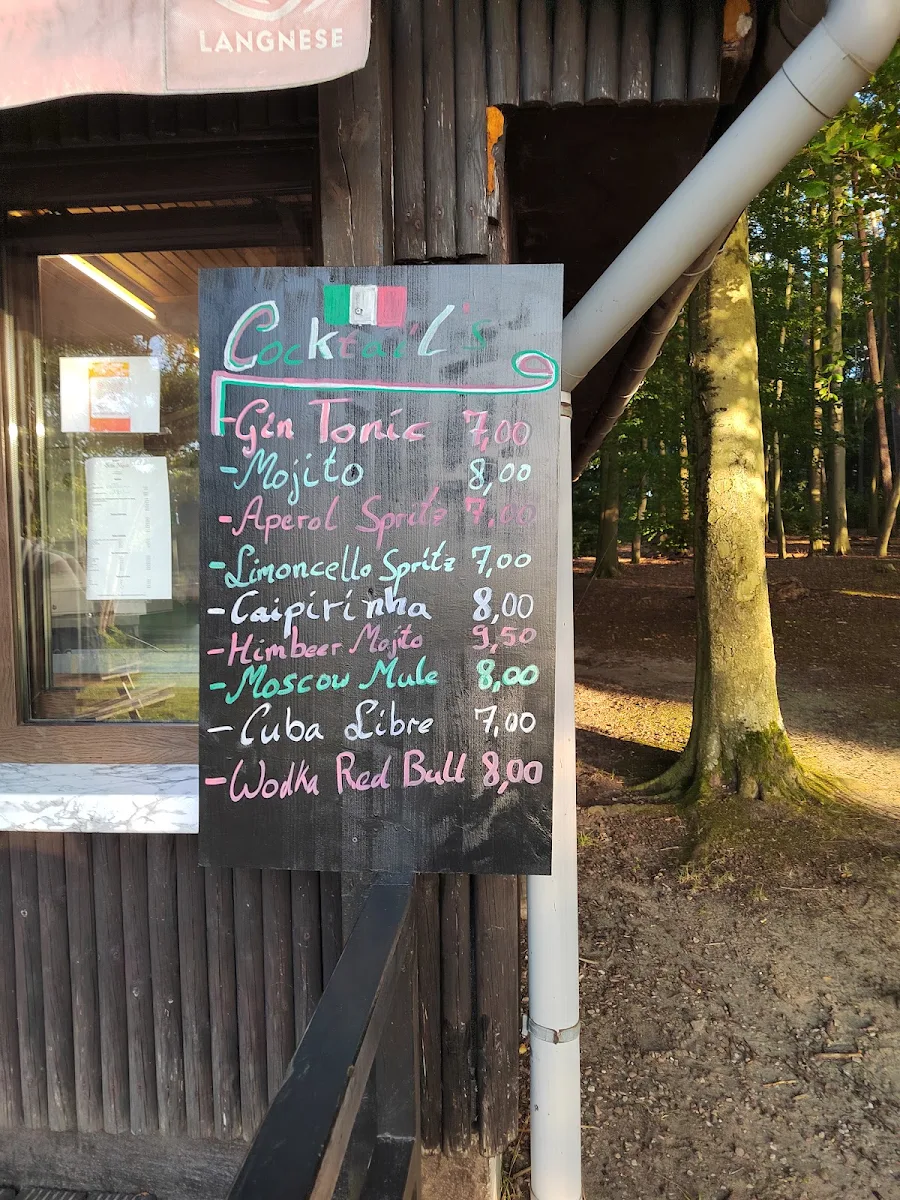 LANGNESE
Cocktail's
-Gin Tonic 7,00
-Mojito 8,00
-Aperol Spritz 7,00
-Limoncello Spritz 7,00
-Caipirinha 8,00
-Himbeer Mojito 9,50
-Moscow Mule 8,00
-Cuba Libre 7,00
-Wodka Red Bull 8,00